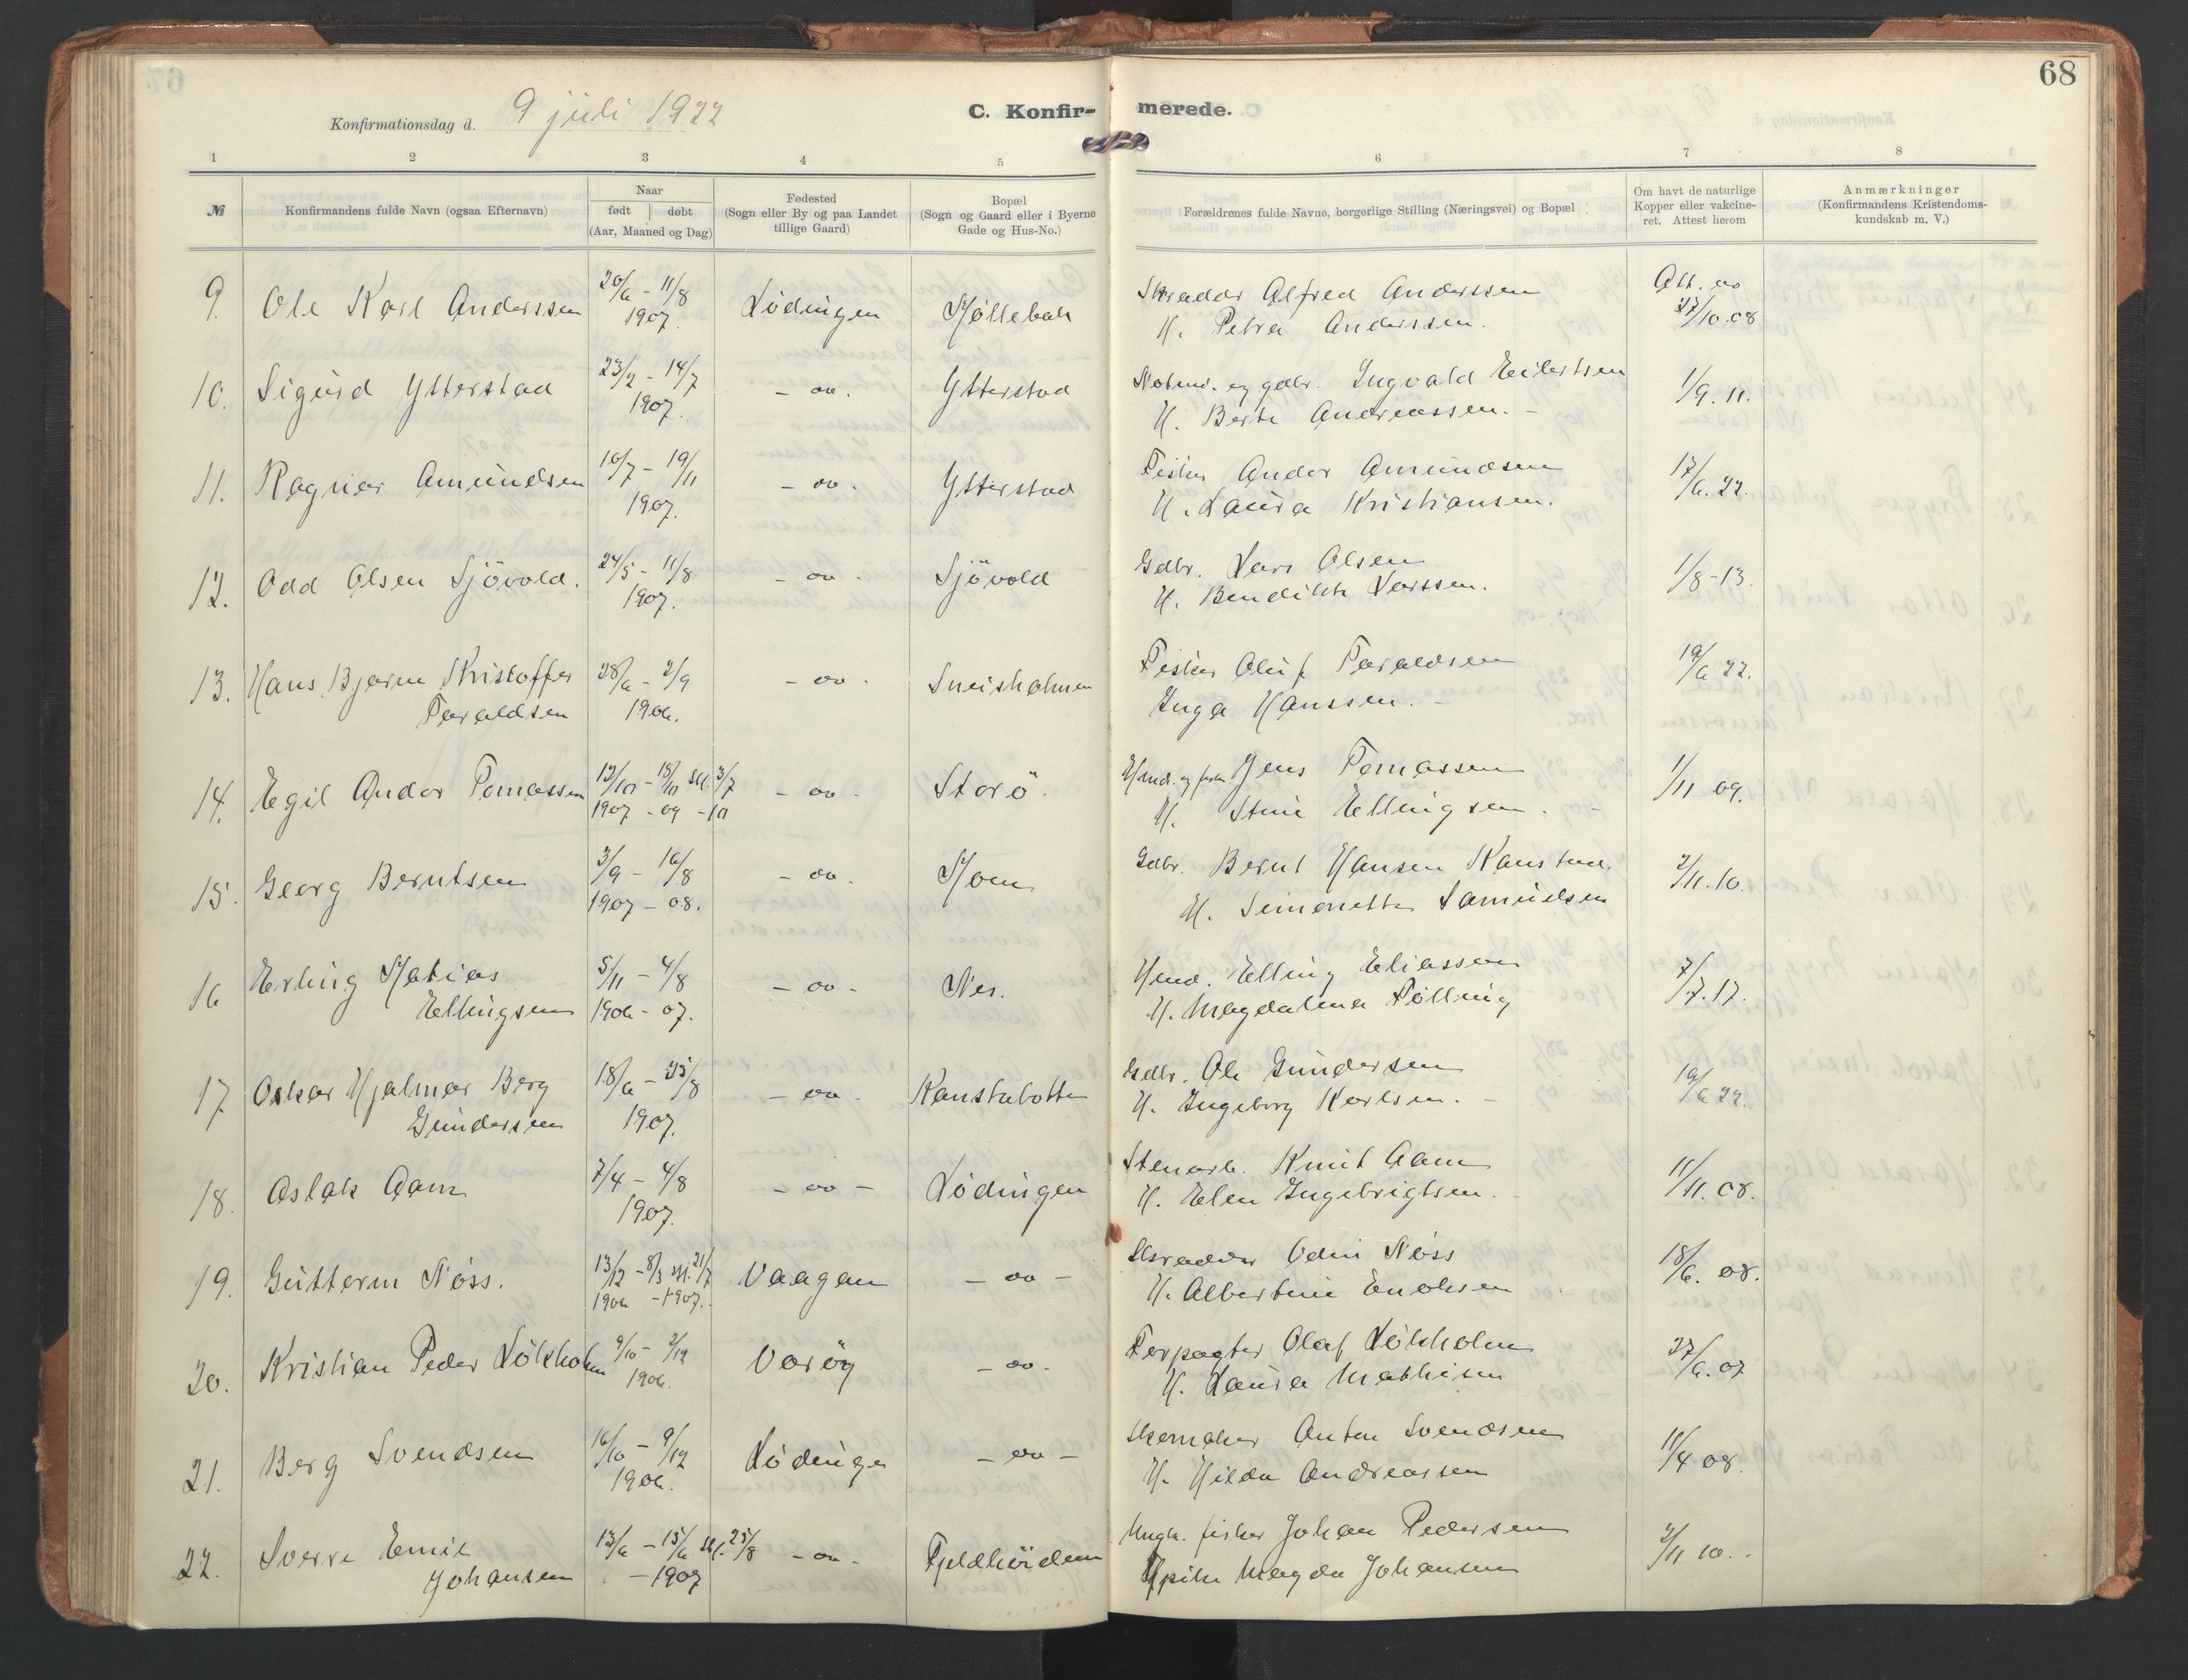 68
Konfirmationsdag d. 9 juli 1922
C. Konfir- merede.
1 2 3 4 5 6 7 8
№
Konfirmandens fulde Navn (ogsaa Efternavn)
Naar
født | døbt
(Aar, Maaned og Dag)
Fødested
(Sogn eller By og paa Landet
tillige Gaard)
Bopæl
(Sogn og Gaard eller i Byerne
Gade og Hus-No.)
Forældrenes fulde Navne, borgerlige Stilling (Næringsvei) og Bopæl
Om havt de naturlige
Kopper eller vakcine-
ret. Attest herom
Anmærkninger
(Konfirmandens Kristendoms-
kundskab m. V.)
9. Ole Karl Anderssen 20/6 - 11/8 1907. Lödingen Möllebak
Skrædder Alfred Anderssen Att. av
H. Petra Anderssen. 27/10.08
10. Sigurd Ytterstad 23/2 - 14/7 1907. - oo. Ytterstad
Notmd. og gdbr. Ingvald Eilertsen 1/9. 11.
H. Berte Andreassen. -
11. Ragnar Amundsen 10/7 - 19/11 1907. - oo. Ytterstad
Fisker Andor Amundsen 17/6. 22.
H. Laura Kristiansen.
12. Odd Olsen Sjövold. 24/5 - 11/8 1907. - oo - Sjövold
Gdbr. Lars Olsen 1/8-13.
H. Bendikte Larssen.
13. Hans Bjarne Kristoffer 28/6 - 2/9 - oo - Sneisholmen
Taraldsen 1906.
Fisker Oluf Taraldsen 19/6 22.
Inga Hanssen. -
14. Egil Andor Tomassen 12/10 - 18/10 stf. 3/7 - oo - Storö.
1907 - 09 - 10
Hmd. og fisker Jens Tomassen 1/11 09.
H. Stine Ellingsen. -
15. Georg Berntsen 3/9 - 16/8 - oo. Mom
1907 - 08.
Gdbr. Bernt Hansen Kanstad. 2/11.10.
H. Simonette Samuelsen
16 Erling Matias 5/11 - 4/8 - oo - Nes.
Ellingsen 1906 - 07.
Hmd. Elling Eliassen 7/7.17.
H. Magdalena Tölling
17 Oskar Hjalmar Berg 18/6 - 25/8 - oo - Kanstabotten
Gundersen 1907.
Gdbr. Ole Gundersen 19/6 22.
H. Ingeborg Karlsen. -
18. Aslak Aam 7/4 - 4/8 1907. - oo - Lödingen
Stenarb. Knut Aam 11/11. 08.
H. Elen Ingebrigtsen. -
19. Guttorm Nöss. 13/12 - 8/3 stf. 21/7 Vaagan - oo -
1906 - 1907.
Skrædder Odin Nöss 18/6. 08.
H. Albertine Enoksen
20. Kristian Peder Lökholm 9/10 - 2/12 1906. Veröy - oo -
Forpagter Olaf Lökholm 27/6. 07
H. Laura Mathisen
21. Berg Svendsen 16/10 - 9/12 1906. Lödingen - oo -
Skomaker Anton Svendsen 11/4 08.
H. Hilda Andreassen
22. Sverre Emil 13/6 - 15/6 stf. 25/8 - oo - Fjeldheidem
Johansen - 1907
Ungk. fisker Johan Pedersen 2/11 10. -
Pike Magda Johansen